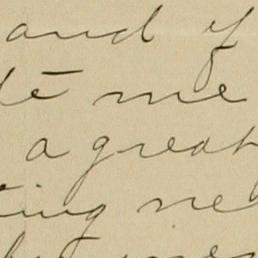 and if
te me
a great
ting ne